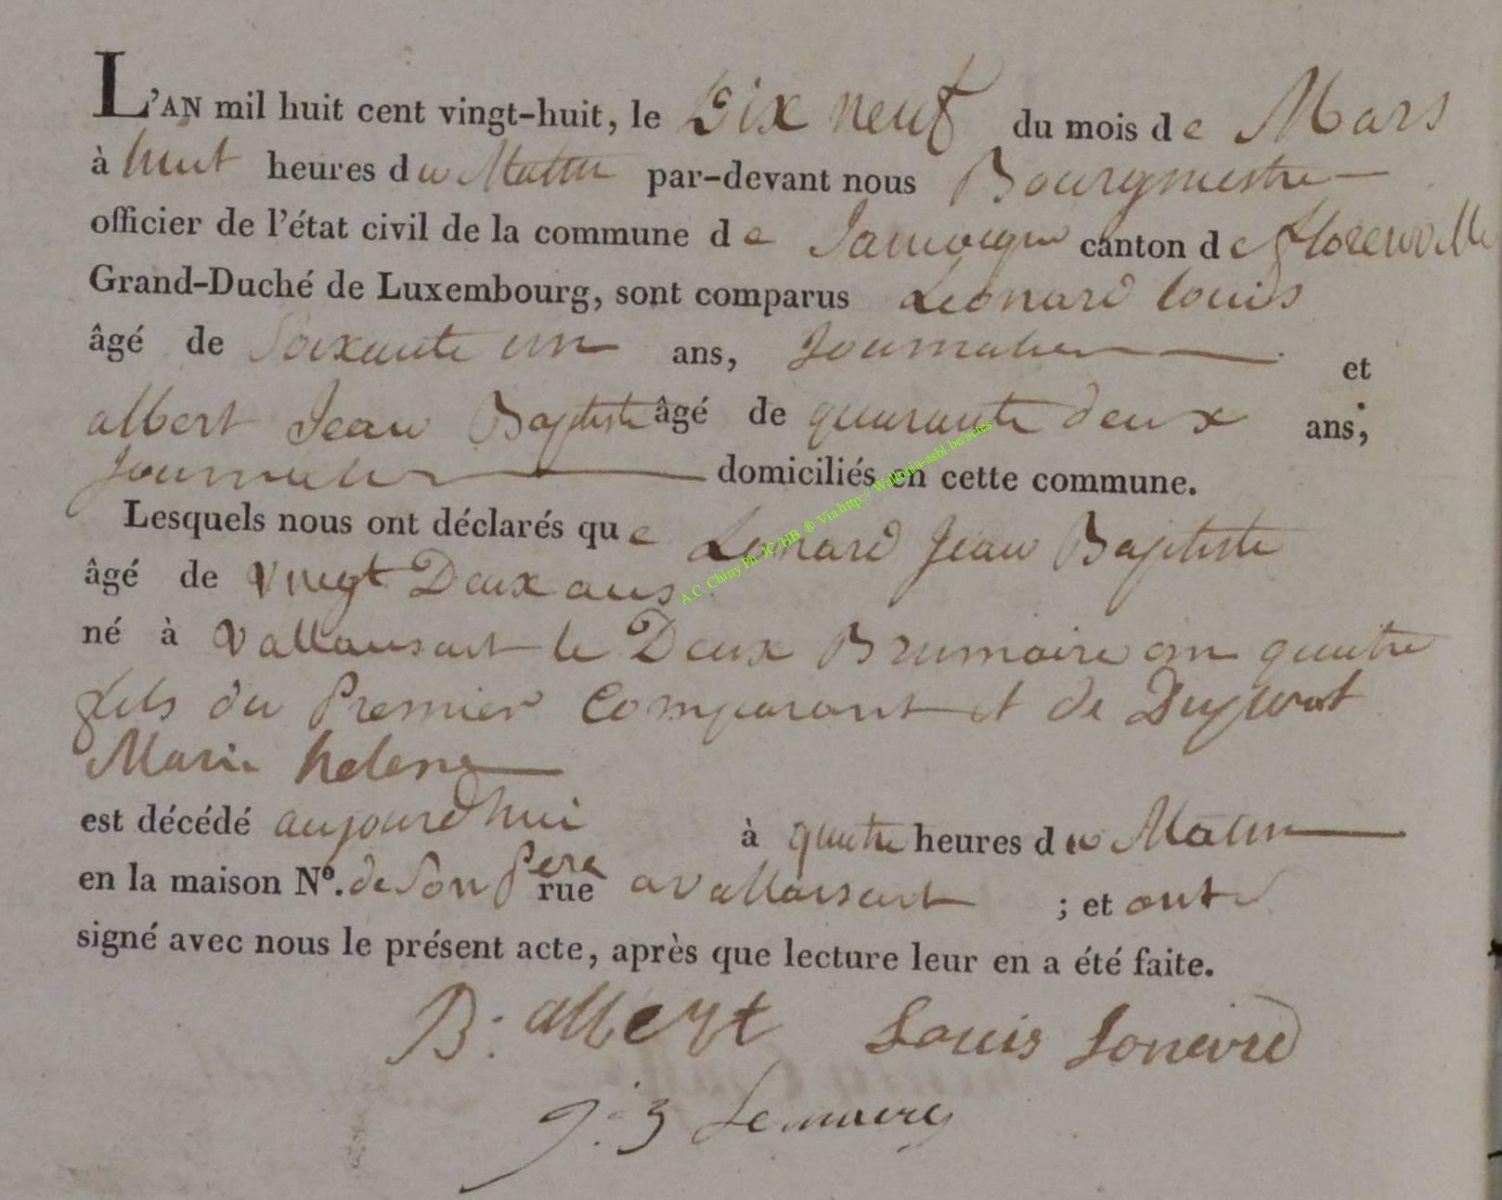 L'AN mil huit cent vingt-huit, le Dix neuf du mois de Mars
à huit heures du Matin par-devant nous Bourgmestre
officier de l'état civil de la commune de Jamoigne canton de florenville
Grand-Duché de Luxembourg, sont comparus Leonard louis
âgé de Soixante un ans, Journalier et
albert Jean Baptiste âgé de quarante deux ans,
Journalier domiciliés en cette commune.
Lesquels nous ont déclarés que Lenard Jean Baptiste
âgé de vingt Deux ans
né à vallansart le Deux Brumaire an quatre
fils du Premier Comparant et de
Marie helene
est décédé aujourd'hui à quatre heures du Matin
en la maison N°. de Son Pere rue a vallansart ; et ont
signé avec nous le présent acte, après que lecture leur en a été faite.
B: albert Louis Lonard
A.C. Chiny Ph. JC/HB ® Via http:// Wallonia-asbl.be/actes